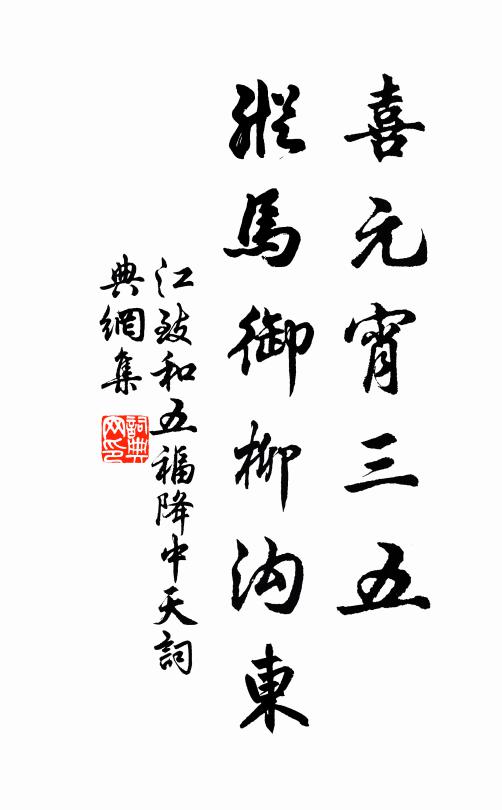 喜元宵三五
縱馬御柳沟東
江致和五福降中天詞
典網集
詞典网印